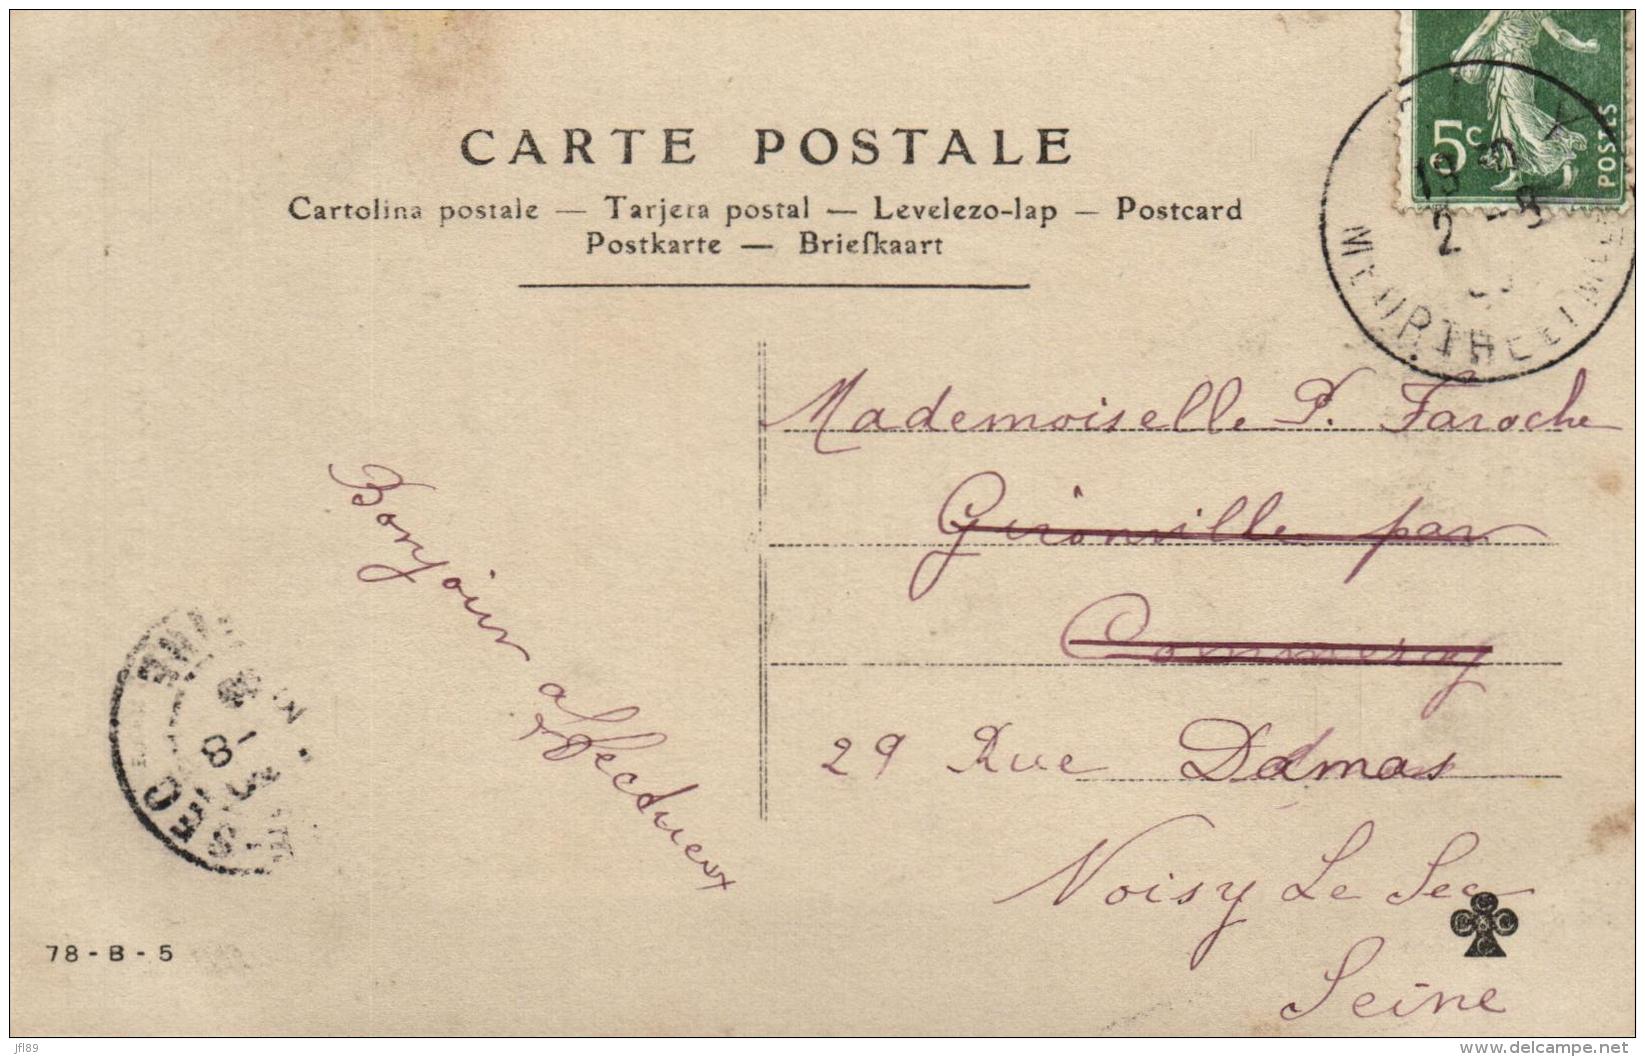 CARTE POSTALE
Cartolina postale — Tarjeta postal — Levelezo-lap — Postcard
Postkarte — Briefkaart
5c
POSTES
MEURTHE ET M
Mademoiselle P. Faroche
Gironville par
Commercy
29 Rue Damas
Noisy Le Sec
Seine
Bonjour
affectueux
SEC
78 - B - 5
jfl89
www.delcampe.net